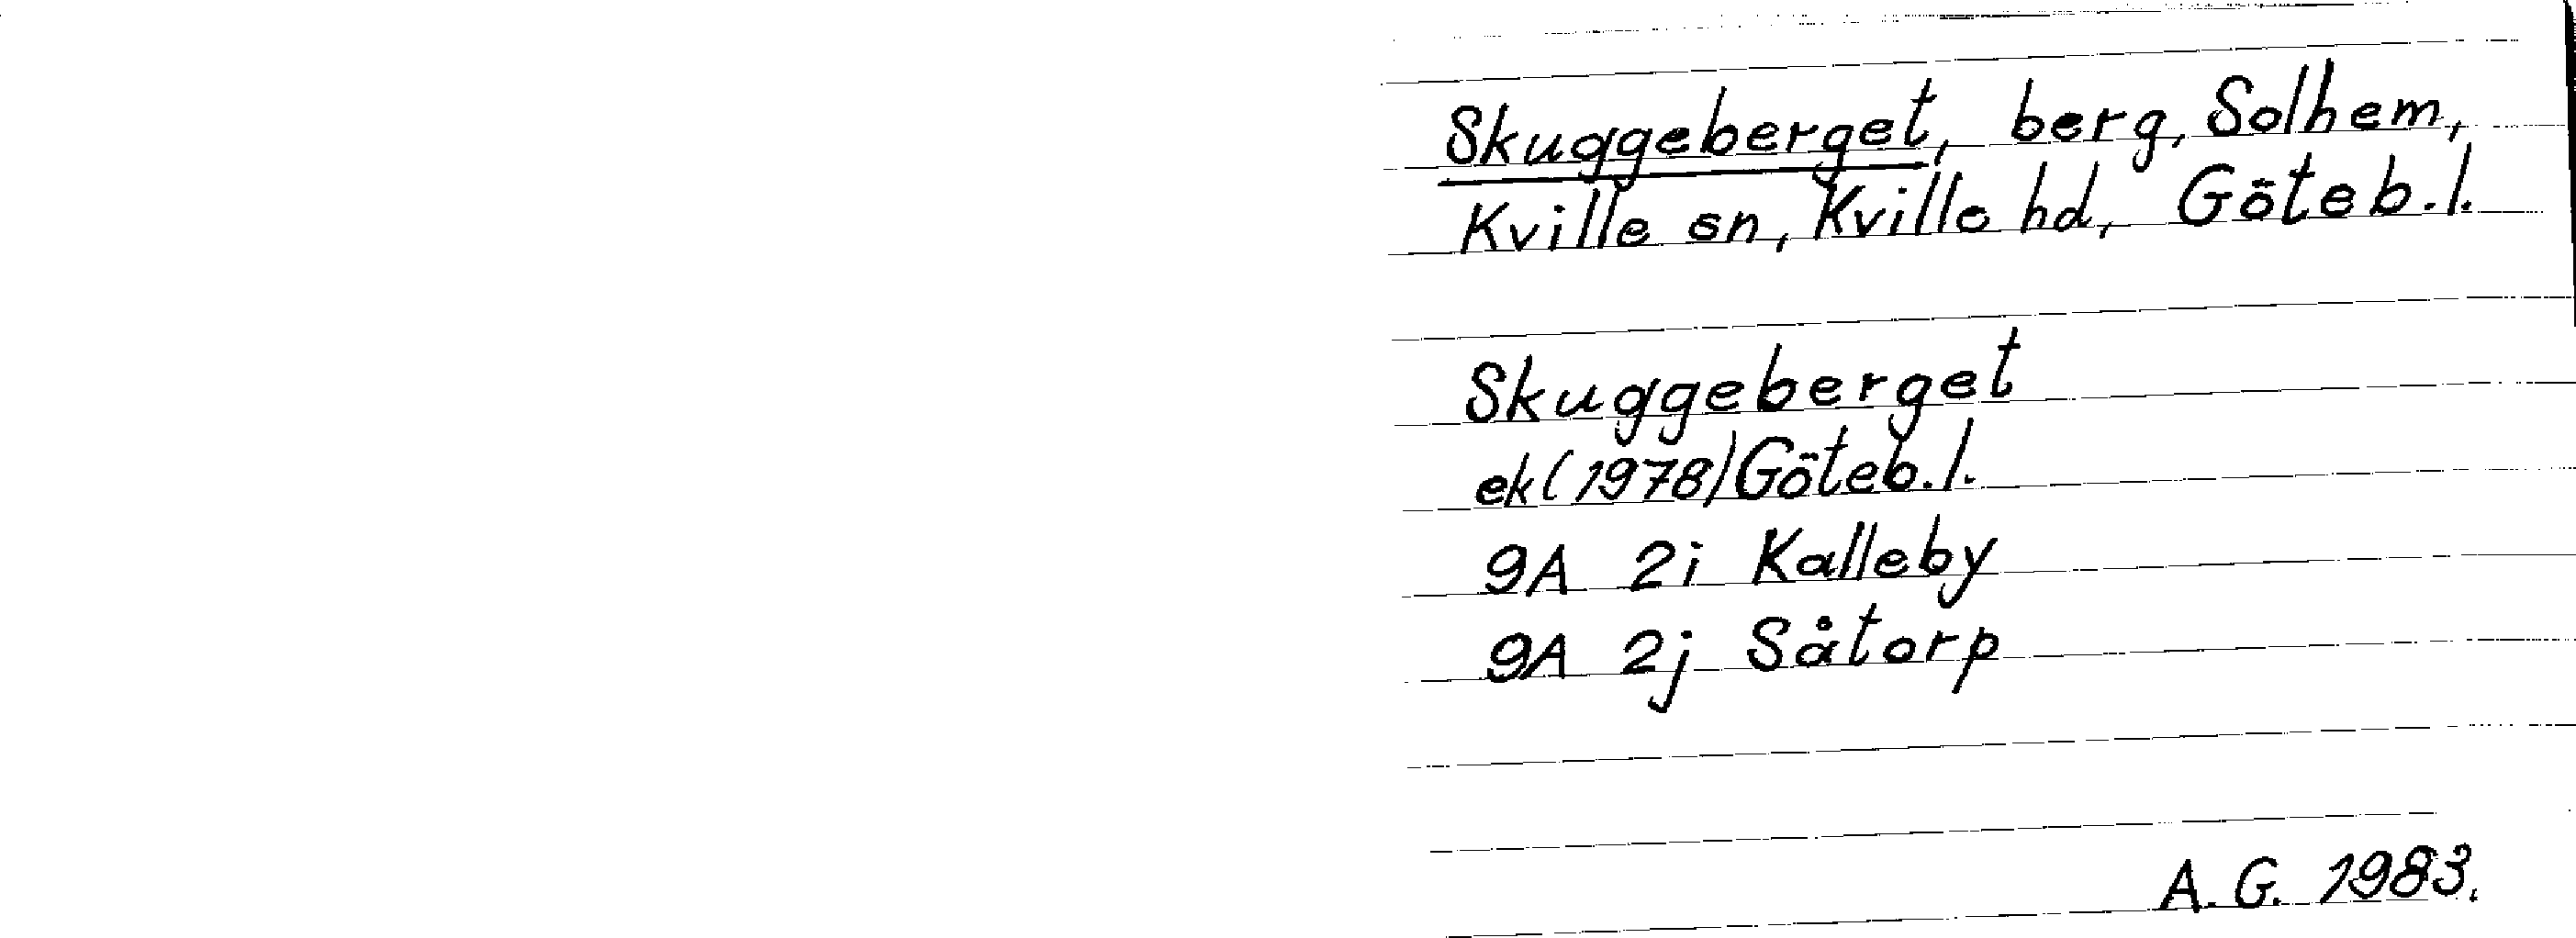 Skuggeberget, berg, Solhem,
Kville sn, Kville hd, Göteb.l.
Skuggeberget
ek(1978)Göteb.l.
9A 2i Kalleby
9A 2j Såtorp
A.G. 1983.